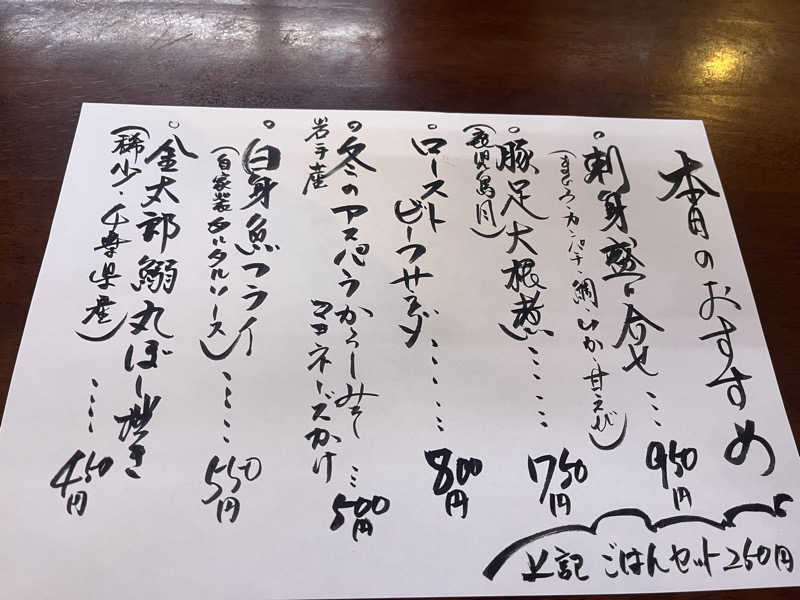 本日のおすすめ
。刺身盛り合せ… 950円
(まひろ・カンパチ・鯛・いか・甘えび)
。豚足大根煮…… 750円
(鹿児島月)
。ローストビーフサラダ…… 800円
。冬のアスパラからしみそ… 500円
岩手産 マヨネーズかけ
。白身魚フライ…… 550円
(自家製タルタルソース)
。金太郎鰯丸ぼし焼き…… 450円
(稀少・千葉県産)
上記 ごはんセット250円